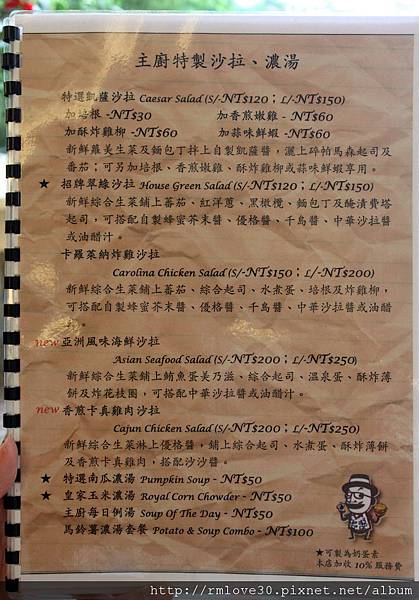 主廚特製沙拉、濃湯
特選凱薩沙拉 Caesar Salad (S/-NT$120；L/-NT$150)
加培根 -NT$30 加香煎嫩雞 - NT$60
加酥炸雞柳 -NT$60 加蒜味鮮蝦 -NT$60
新鮮蘿美生菜及麵包丁拌上自製凱薩醬，灑上碎帕馬森起司及
番茄；可另加培根、香煎嫩雞、酥炸雞柳或蒜味鮮蝦享用。
★ 招牌翠綠沙拉 House Green Salad (S/-NT$120；L/-NT$150)
新鮮綜合生菜鋪上蕃茄、紅洋蔥、黑橄欖、麵包丁及醃漬費塔
起司，可搭配自製蜂蜜芥末醬、優格醬、千島醬、中華沙拉醬
或油醋汁。
卡羅萊納炸雞沙拉
Carolina Chicken Salad (S/-NT$150；L/-NT$200)
新鮮綜合生菜鋪上蕃茄、綜合起司、水煮蛋、培根及炸雞柳，
可搭配自製蜂蜜芥末醬、優格醬、千島醬、中華沙拉醬或油醋
汁。
new 亞洲風味海鮮沙拉
Asian Seafood Salad (S/-NT$200；L/-NT$250)
新鮮綜合生菜鋪上鮪魚蛋美乃滋、綜合起司、溫泉蛋、酥炸薄
餅及炸花枝圈，可搭配中華沙拉醬或油醋汁。
new 香煎卡真雞肉沙拉
Cajun Chicken Salad (S/-NT$200；L/-NT$250)
新鮮綜合生菜淋上優格醬，鋪上綜合起司、水煮蛋、酥炸薄餅
及香煎卡真雞肉，搭配沙沙醬。
★ 特選南瓜濃湯 Pumpkin Soup - NT$50
★ 皇家玉米濃湯 Royal Corn Chowder - NT$50
主廚每日例湯 Soup Of The Day - NT$50
馬鈴薯濃湯套餐 Potato & Soup Combo - NT$100
★可製為奶蛋素
本店加收 10% 服務費
http://rmlove30.pixnet.net/album